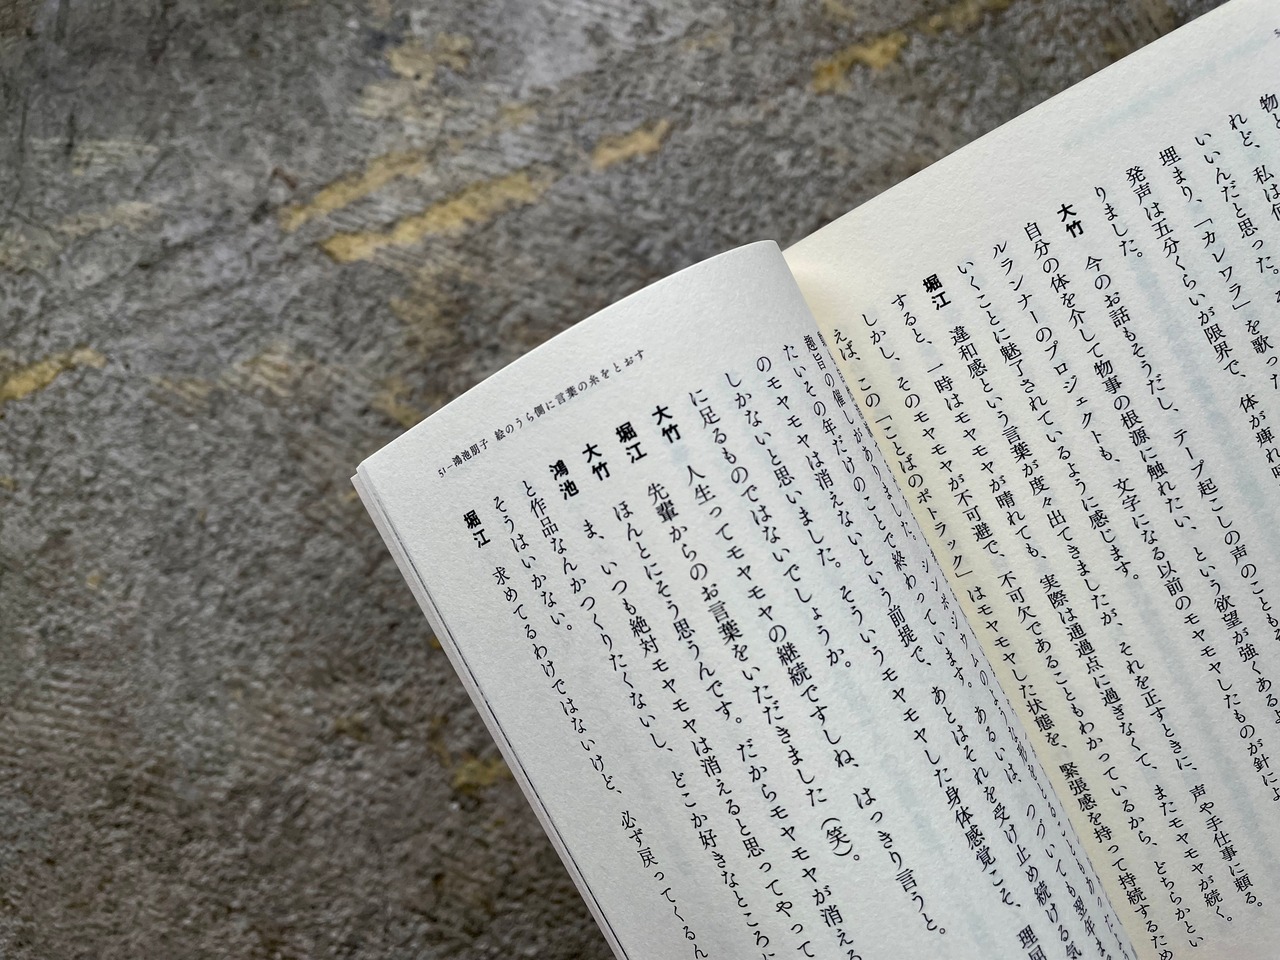 物と
れど、私は何
いいんだと思った。
埋まり、「カレワラ」を歌っ
発声は五分くらいが限界で、体が痺れ
りました。
大竹 今のお話もそうだし、テープ起こしの声のことも
自分の体を介して物事の根源に触れたい、という欲望が強くあるよ
ルランナーのプロジェクトも、文字になる以前のモヤモヤしたものが針によ
いくことに魅了されているように感じます。
堀江 違和感という言葉が度々出てきましたが、それを正すときに、声や手仕事に頼る。
すると、一時はモヤモヤが晴れても、実際は通過点に過ぎなくて、またモヤモヤが続く。
しかし、そのモヤモヤが不可避で、不可欠であることもわかっているから、どちらかとい
えば、この「ことばのポトラック」はモヤモヤした状態を、緊張感を持って持続するため
趣旨の催しがありました。シンポジウムのような
たいその年だけのことで終わっています。あるいは、つづいても翌年ま
のモヤモヤは消えないという前提で、あとはそれを受け止め続ける気
しかないと思いました。そういうモヤモヤした身体感覚こそ、
に足るものではないでしょうか。
大竹 人生ってモヤモヤの継続ですしね、はっきり言うと。
堀江 先輩からのお言葉をいただきました（笑）。
大竹 ほんとにそう思うんです。だからモヤモヤが消える
鴻池 ま、いつも絶対モヤモヤは消えると思ってやって
と作品なんかつくりたくないし、どこか好きなところに
そうはいかない。
堀江 求めてるわけではないけど、必ず戻ってくるん
51—鴻池朋子 絵のうら側に言葉の糸をとおす